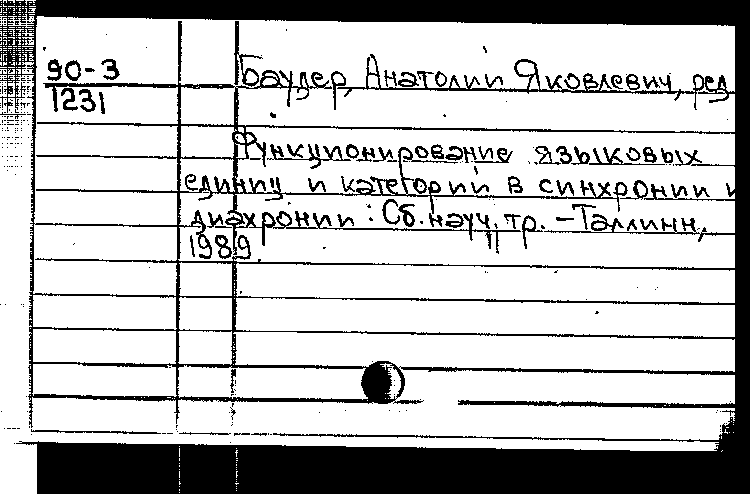 90-3
1231
Баудер, Анатолий Яковлевич, ред
Функционирование языковых
единиц и категорий в синхронии и
диахронии: Сб. науч. тр. – Таллинн,
1989.